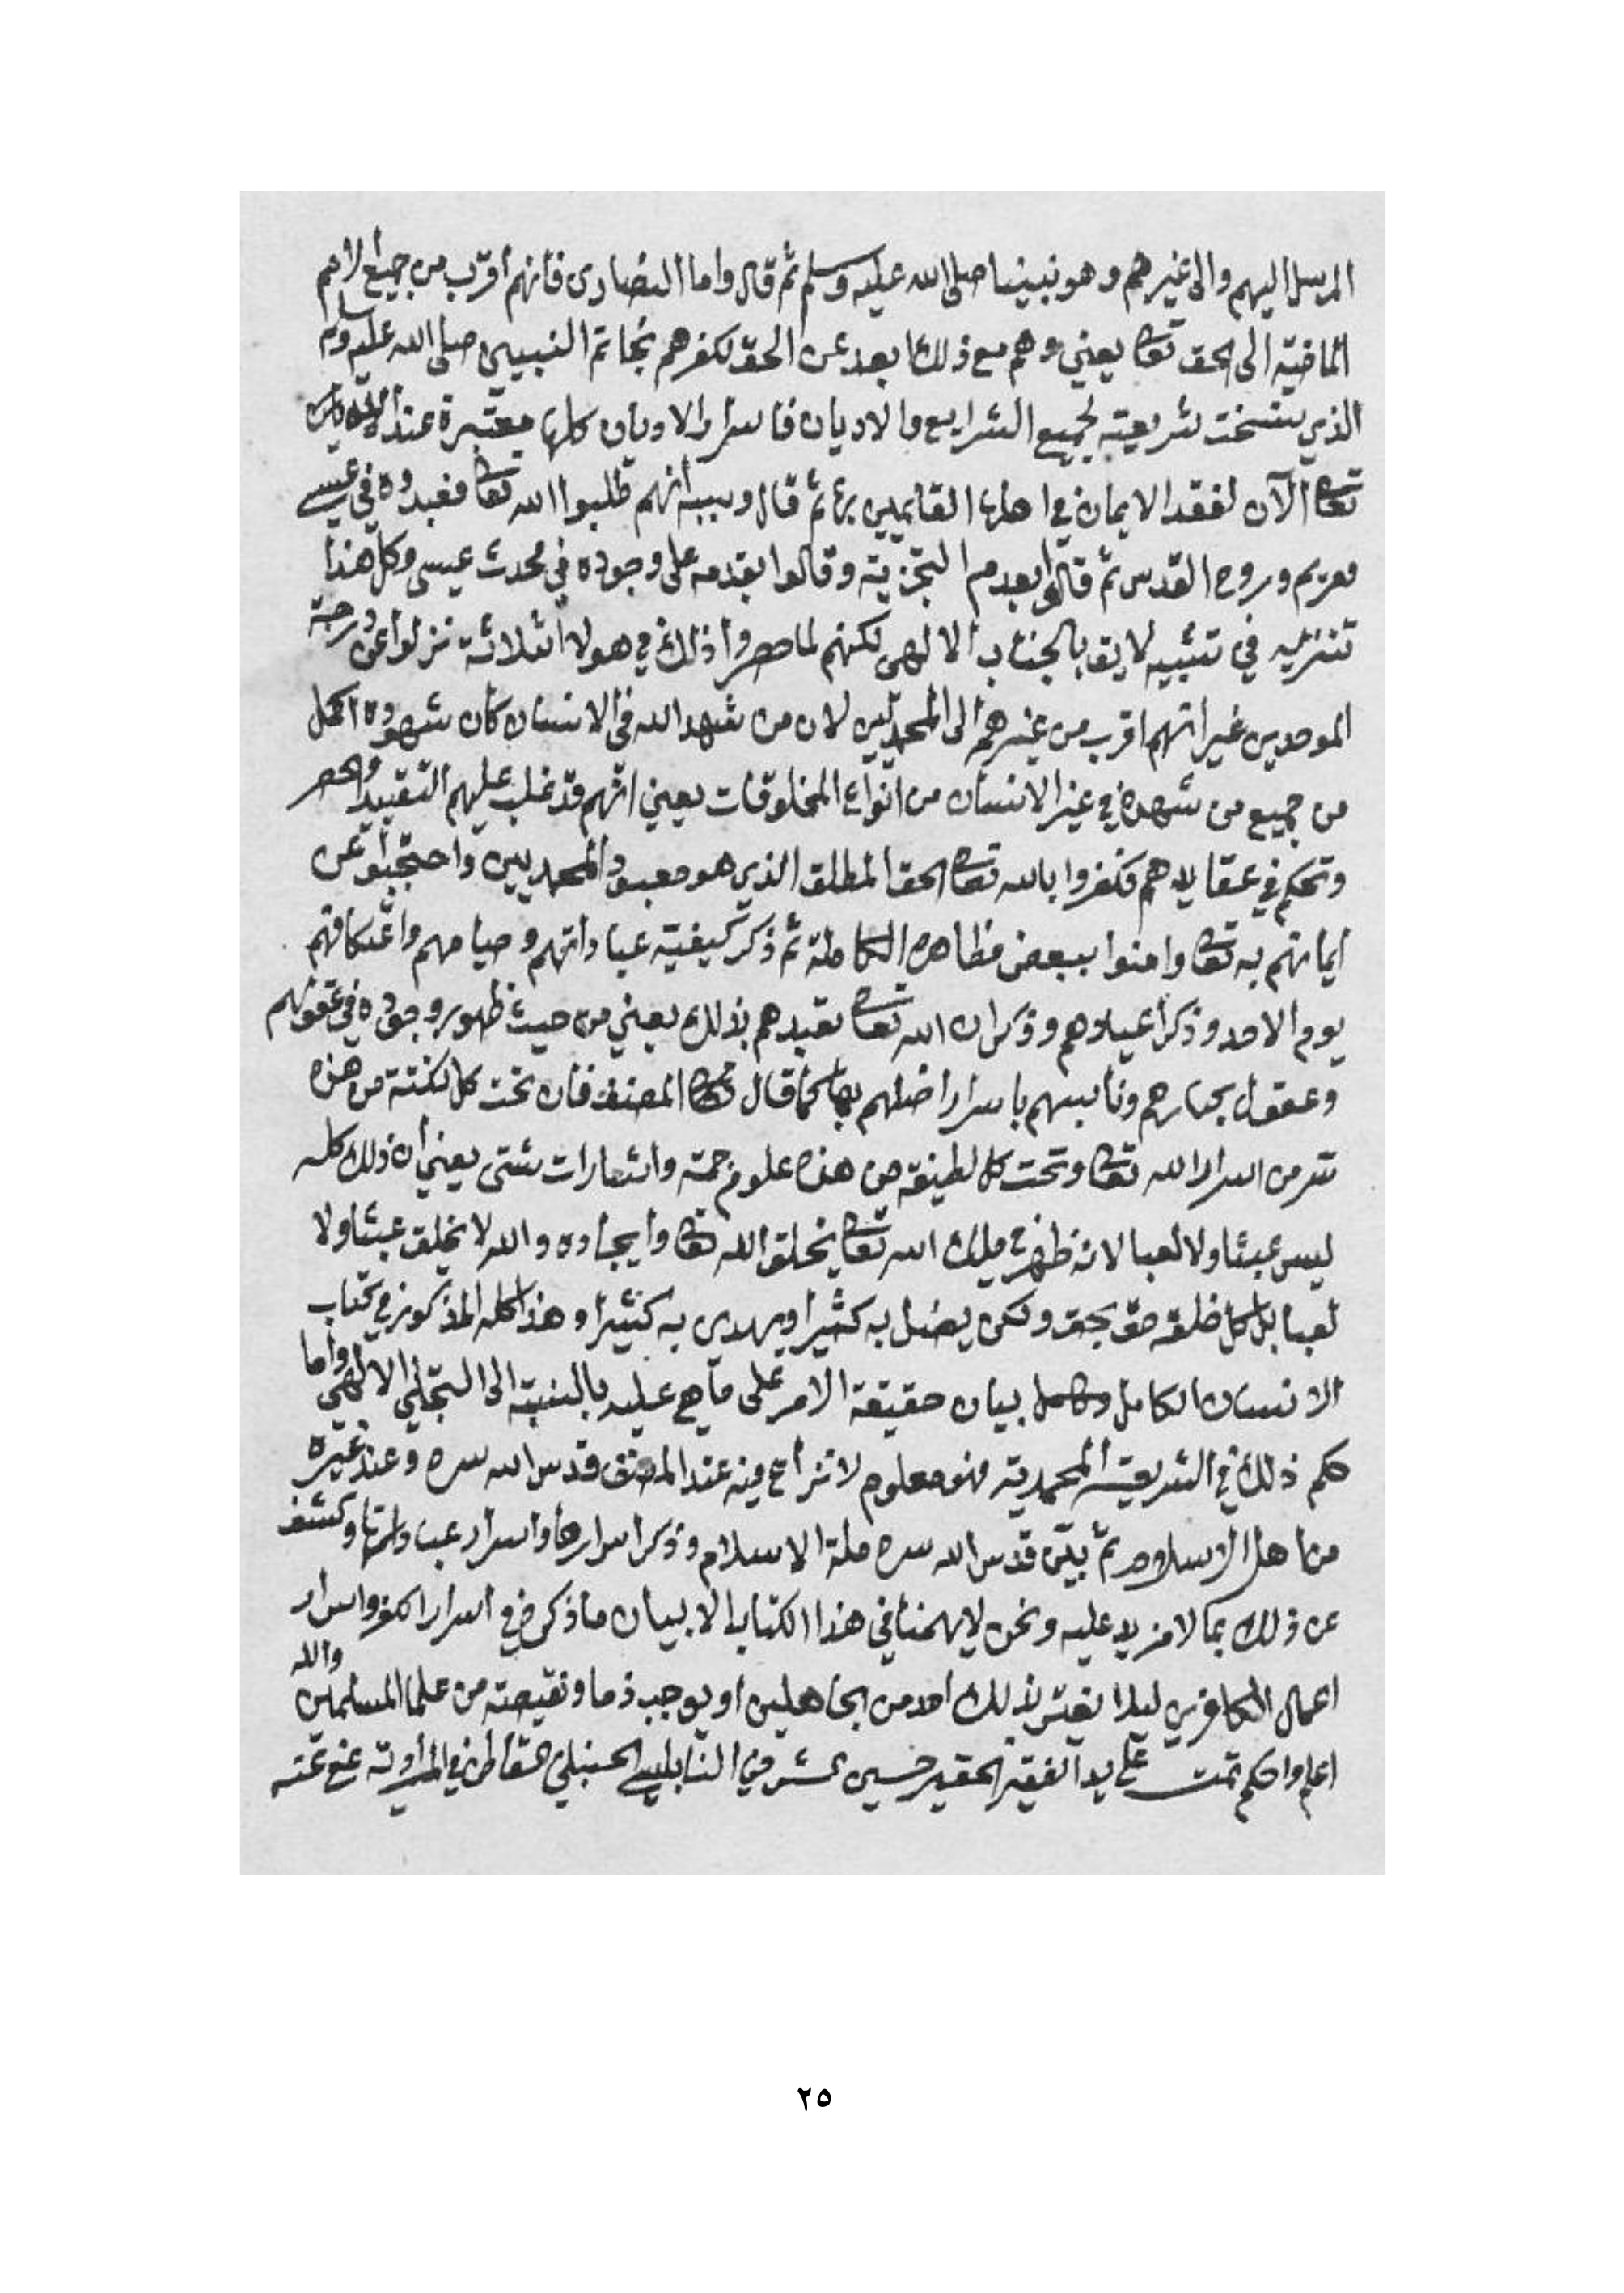 المرسل اليهم والى غيرهم وهو نبينا صلى الله عليه وسلم ثم قال واما النصارى فانهم اقرب من جميع الامم
الماضية الى الحق تعا يعني وهم مع ذلك ابعد عن الحق لكفرهم بخاتم النبيين صلى الله عليه وسلم
الذي نسخت شريعته لجميع الشرايع والاديان فاسرار الاديان كلها معتبرة عند الله
تعا الآن لفقد الايمان في اهلها القايمين بها ثم قال وسببه انهم طلبوا الله تعا فعبدوه في عيسى
ومريم وروح القدس ثم قالوا بعدم التجزية وقالوا بقدمه على وجوده في محدث عيسى وكل هذا
تنزيه في تشبيه لايق بالجناب الالهي لكنهم لما حصروا ذلك في هولا الثلاثة نزلوا عن درجة
الموحدين غير انهم اقرب من غيرهم الى المحمديين لان من شهد الله في الانسان كان شهوده اكمل
من جميع من شهده في غير الانسان من انواع المخلوقات يعني انهم قد غلب عليهم التقييد والحصر
وتحكم في عقايدهم فكفروا بالله تعا الحق المطلق الذي هو معبود المحمديين واحتجبوا عن
ايمانهم به تعا وامنوا ببعض مظاهره الكاملة ثم ذكر كيفية عباداتهم وصيامهم واعتكافهم
يوم الاحد وذكر اعيادهم وذكر ان الله تعا تعبدهم بذلك يعني من حيث ظهور وجوده في عقولهم
وعقول احبارهم ونا باسرار اضلهم بها كما قال المصنف فان تحت كل نكتة من هذه
سر من اسرار الله تعا وتحت كل لطيفة من هذه علوم جمة واشارات شتى يعني ان ذلك كله
ليس عبثا ولا لعبا لانه ظهر في ملك الله تعا بخلق الله تعا وايجاده والله لا يخلق عبثا ولا
لعبا بل كل خلقه حق بحق ولكن يضل به كثيرا ويهدي به كثيرا وهذا كله المذكور في كتاب
الانسان الكامل بيان حقيقة الامر على ما هي عليه بالنسبة الى التجلي الالهي واما
حكم ذلك في الشريعة المحمدية فهو معلوم لا نزاع فيه عند المصنف قدس الله سره وعند غيره
من اهل الاسلام ثم بين قدس الله سره ملة الاسلام وذكر اسرارها واسرار عباداتها وكشف
عن ذلك بما لا مزيد عليه ونحن لا يهمنا في هذا الكتاب الا بيان ما ذكره في اسرار الكفر واسرار
اعمال الكافرين ليلا يغتر بذلك احد من الجاهلين او يوجب ذما ونقيصة من علما المسلمين والله
اعلم واحكم تمت على يد الفقير الحقير حسين النابلسي الحنبلي عفي عنه
٢٥